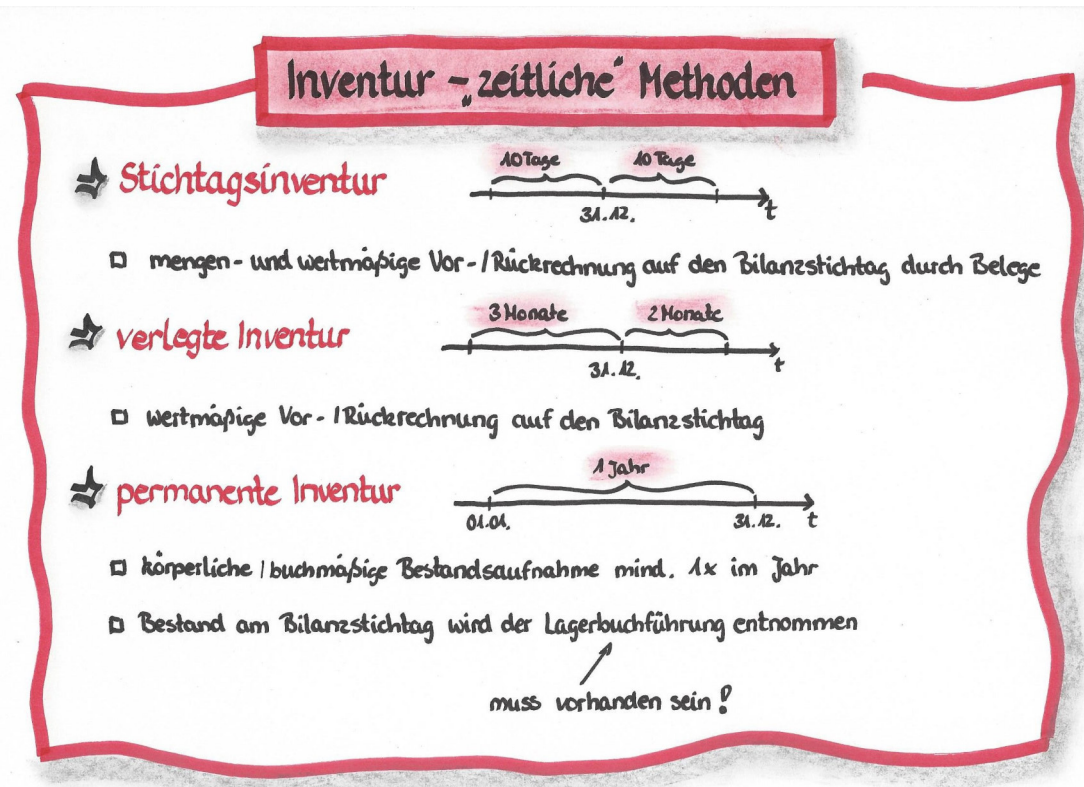 Inventur - „zeitliche“ Methoden
Stichtagsinventur
10 Tage 10 Tage
31.12. t
mengen- und wertmäßige Vor-/Rückrechnung auf den Bilanzstichtag durch Belege
verlegte Inventur
3 Monate 2 Monate
31.12. t
wertmäßige Vor-/Rückrechnung auf den Bilanzstichtag
permanente Inventur
1 Jahr
01.01. 31.12. t
körperliche / buchmäßige Bestandsaufnahme mind. 1x im Jahr
Bestand am Bilanzstichtag wird der Lagerbuchführung entnommen
muss vorhanden sein !